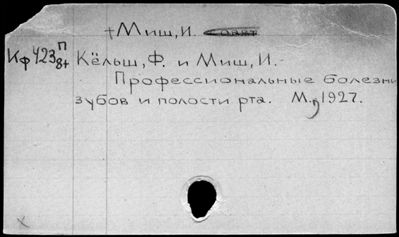 + Миш, И.
Кф 423 П
8+ Кёльш, Ф. и Миш, И. -
Профессиональные болезни
зубов и полости рта. М., 1927.